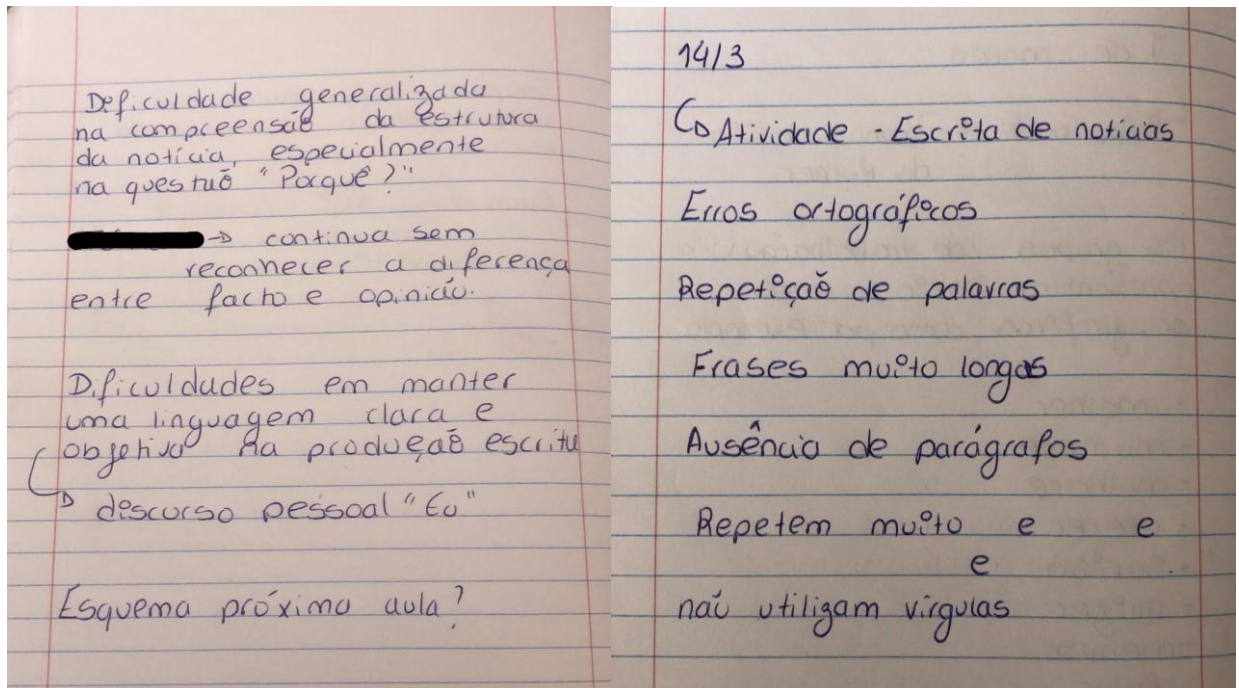 Deficuldade generalizada
na compreensão da estrutura
da notícia, especialmente
na questão "Porquê?"
→ continua sem
reconhecer a diferença
entre facto e opinião.
Dificuldades em manter
uma linguagem clara e
objetiva na produção escrita
↳ discurso pessoal "Eu"
Esquema próxima aula?
14/3
↳ Atividade - Escrita de notícias
Erros ortográficos
Repetição de palavras
Frases muito longas
Ausência de parágrafos
Repetem muito e e
e
não utilizam vírgulas